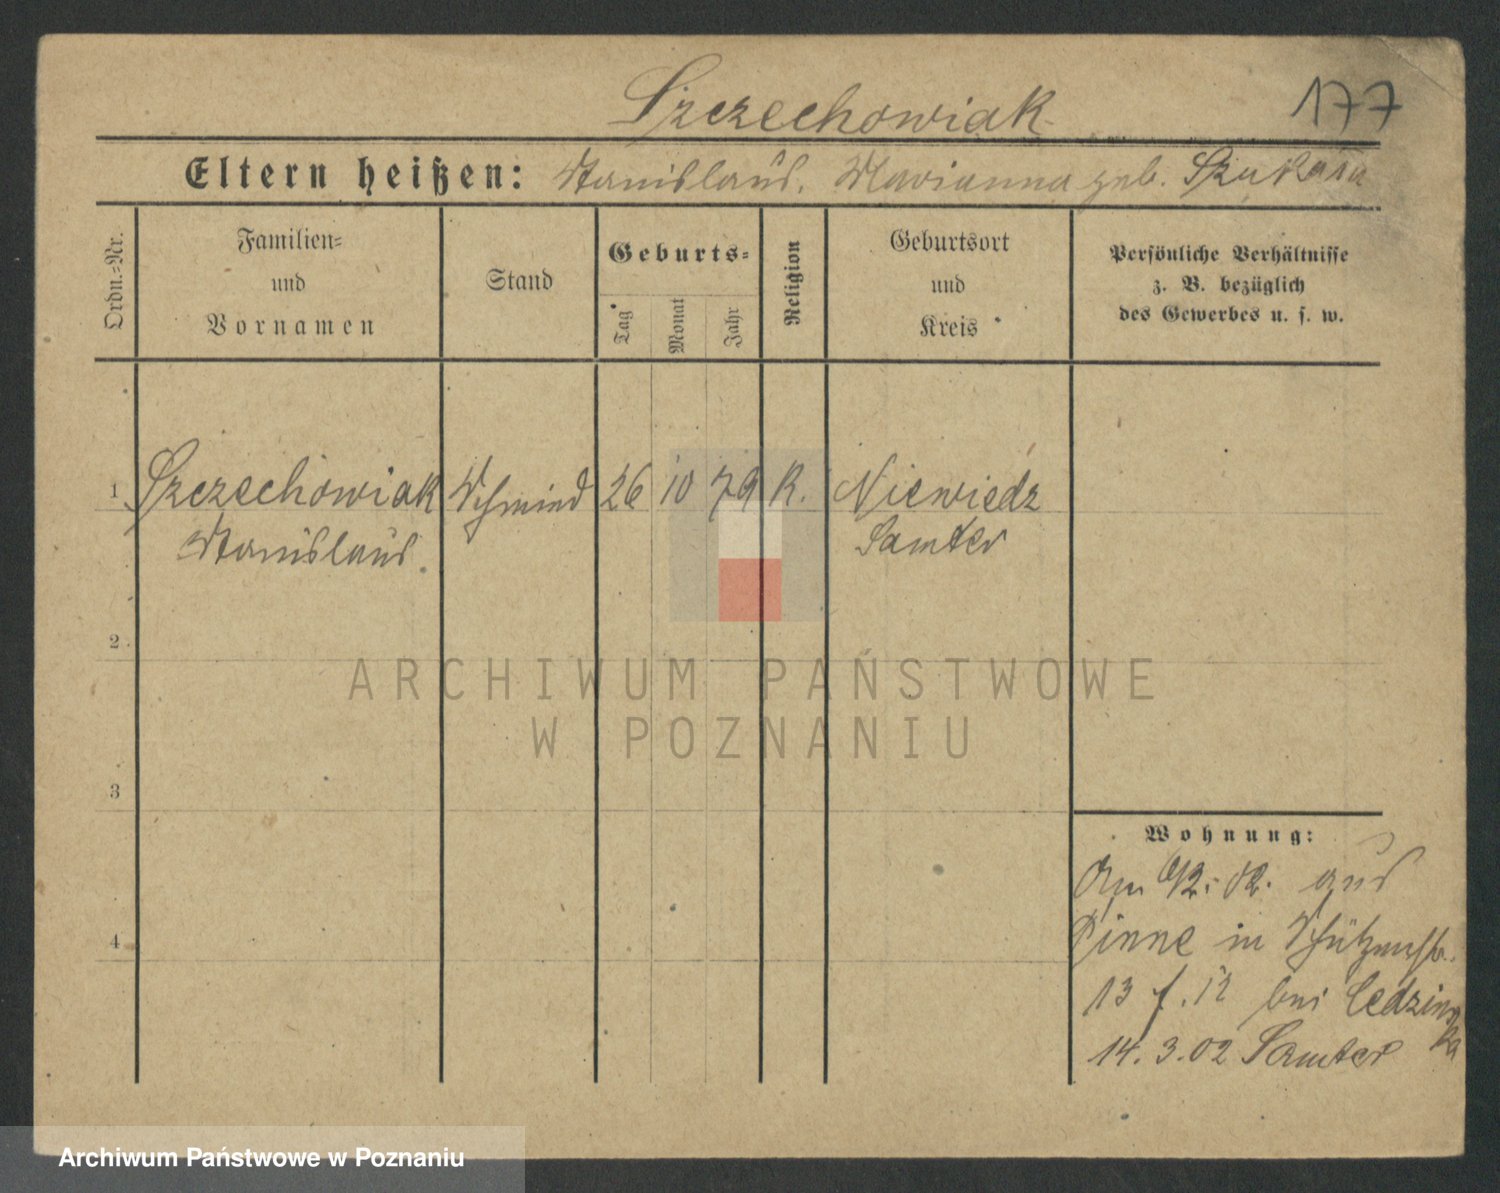 Szczechowiak
177
Eltern heißen: Stanislaus. Marianna geb.
Ordn.=Nr.
Familien=
und
Vornamen
Stand
Geburts=
Tag
Monat
Jahr
Religion
Geburtsort
und
Kreis
Persönliche Verhältnisse
z. B. bezüglich
des Gewerbes u. s. w.
1 Szczechowiak Schmied 26 10 79 R. Niewiedz
Stanislaus. Samter
2
3
4
ARCHIWUM PAŃSTWOWE
W POZNANIU
Wohnung:
Am aus
Pinne in Schützenstr.
13 bei
14. 3. 02 Samter
Archiwum Państwowe w Poznaniu